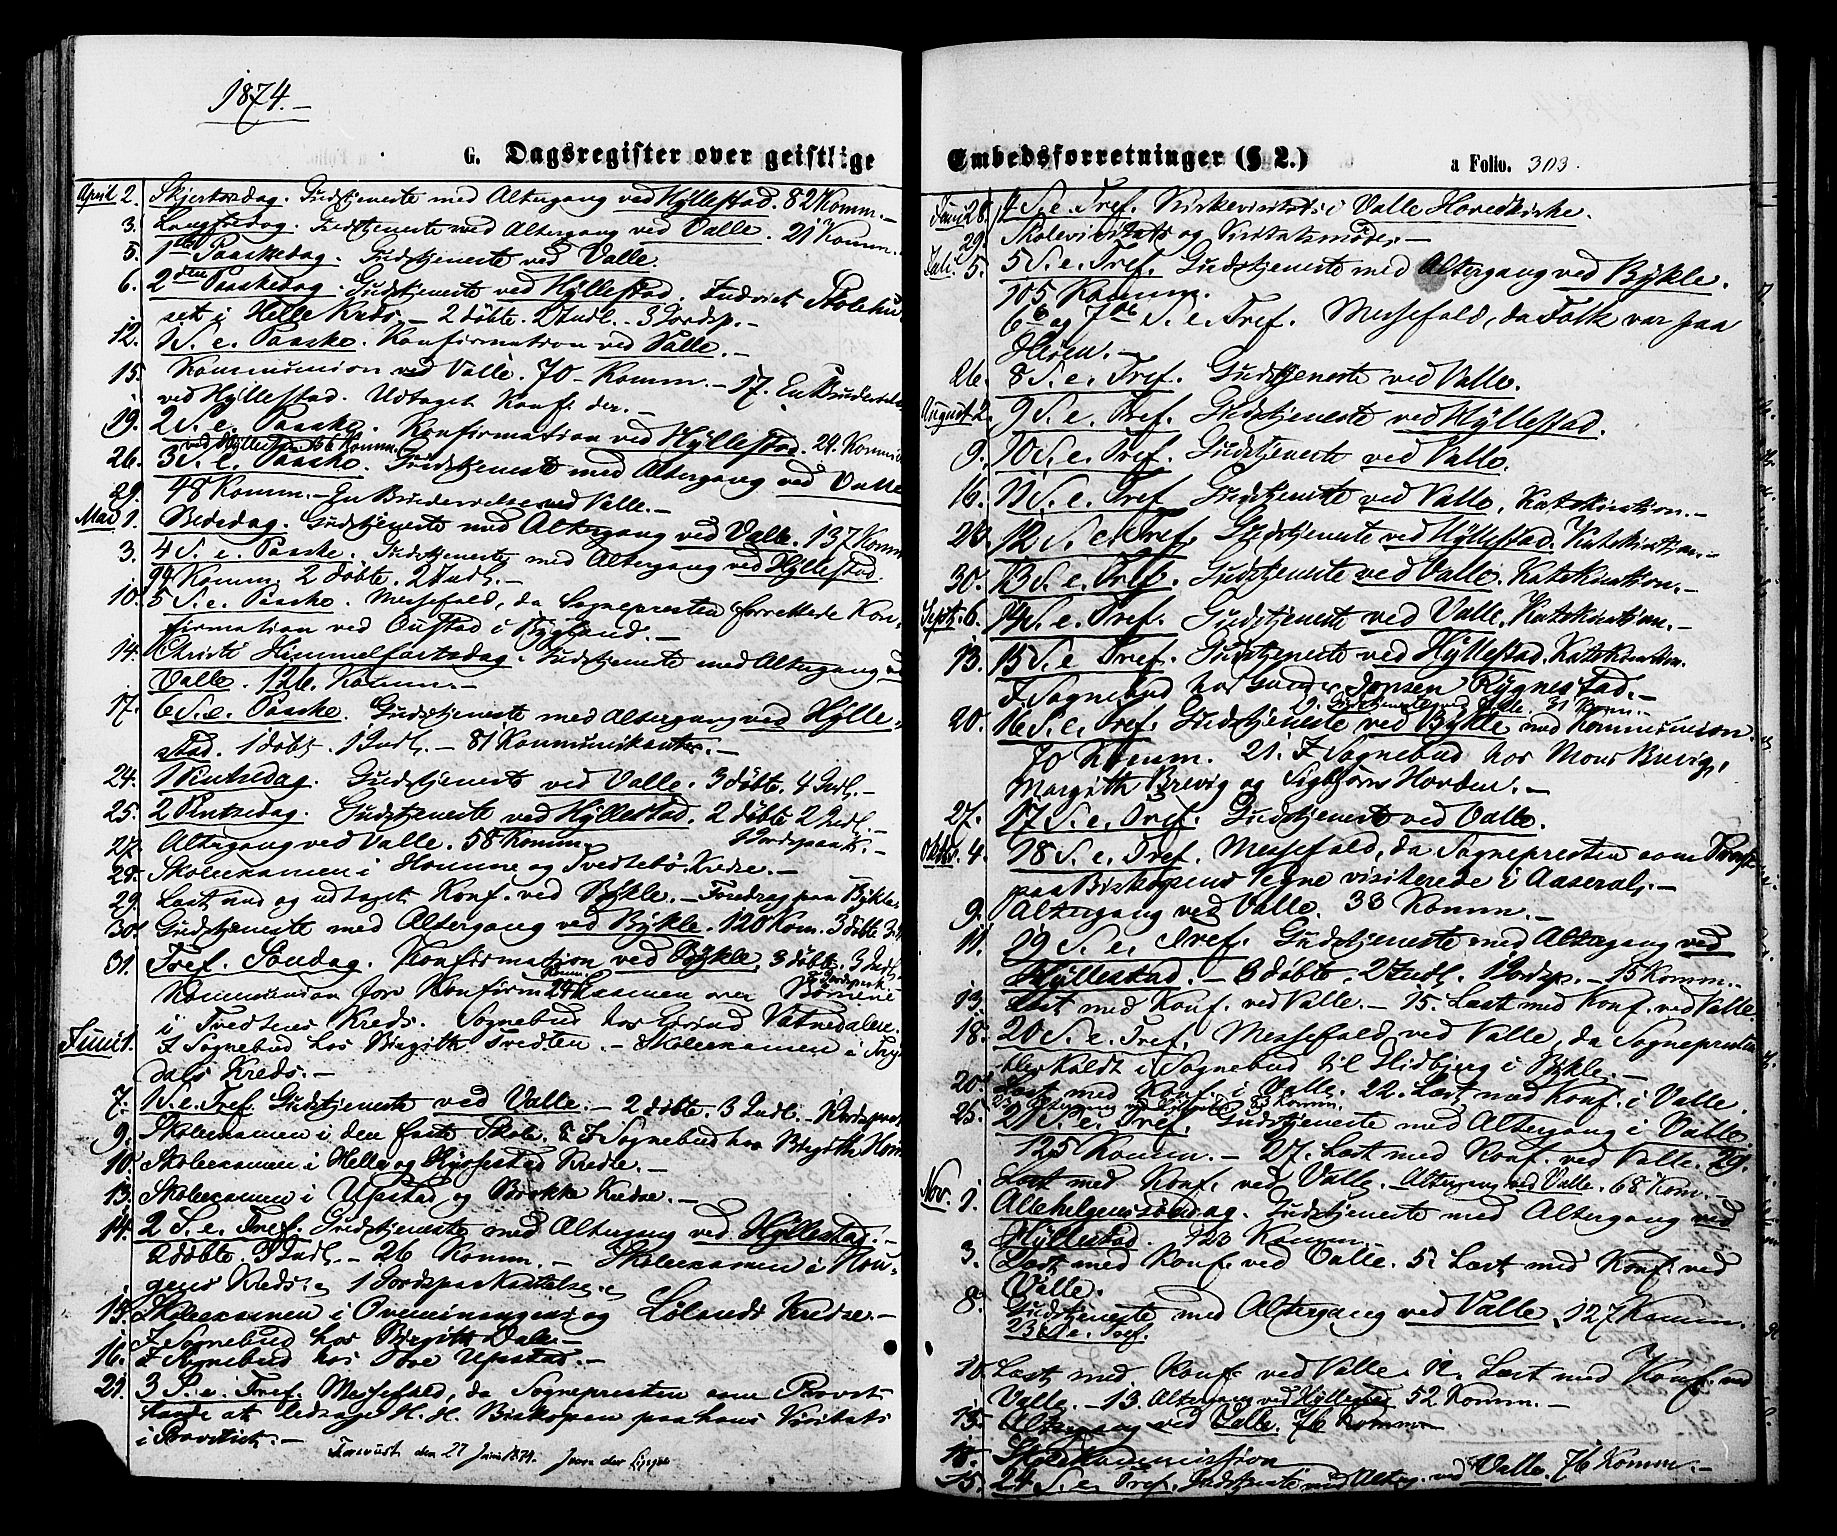 1874.
G. Dagsregister over geistlige
April 2. Skjertorsdag. Gudstjeneste med Altergang ved Hyllestad. 82 Komm.
3. Langfredag. Gudstjeneste med Altergang ved Valle. 21 Komm.
5. 1ste Paaskedag. Gudstjeneste ved Valle.
6. 2den Paaskedag. Gudstjeneste ved Hyllestad. Indviet Skolehu-
set i Helle Kreds. 2 døbte. 2 Indl. 3 Jordsp.
12. 1 S. e. Paaske. Konfirmation ved Valle.
15. Kommunion ved Valle. 70 Komm. 17. En Brudevielse
ved Hyllestad. Udtaget Konf. der.
19. 2 S. e. Paaske. Konfirmation ved Hyllestad. 24. Kommu
ved Hyllestad 56 Komm.
26. 3 S. e. Paaske. Gudstjeneste med Altergang ved Valle
29. 48 Komm. En Brudevielse ved Valle.
Mai 1. Bededag. Gudstjeneste med Altergang ved Valle. 137 Komm
3. 4 S. e. Paaske. Gudstjeneste med Altergang ved Hyllestad.
94 Komm. 2 døbte. 2 Indl.
10. 5 S. e. Paaske. Messefald, da Sognepresten forrettede Kon-
firmation ved Oustad i Bygland.
14. Christi Himmelfartsdag. Gudstjeneste med Altergang ved
Valle. 126 Komm.
17. 6 S. e. Paaske. Gudstjeneste med Altergang ved Hylle-
stad. 1 døbt. 1 Indl. 81 Kommunikanter.
24. 1 Pintsedag. Gudstjeneste ved Valle. 3 døbte. 4 Indl.
25. 2 Pintsedag. Gudstjeneste ved Hyllestad. 2 døbte 2 Indl.
27. Altergang ved Valle. 58 Komm. 1 Jordspaak.
28. Skoleexamen i Homme og Tvedtebø Kredse.
29. Læst med og udtaget Konf. ved Bykle. Foredrag paa Bykle
30. Gudstjeneste med Altergang ved Bykle. 120 Kom. 3 døbte
31. Tref. Søndag. Konfirmation ved Bykle. 3 døbte. 3 Indl.
Kommunion for Konfirm. 24 Komm. Examen over Børnene
i Tvedtenes Kreds. Sognebud hos Vatnedalen.
Juni 1. I Sognebud hos Birgith Tvedten. Skoleexamen i
dals Kreds.
7. 1 S. e. Tref. Gudstjeneste ved Valle. 2 døbte. 3 Indl. 1 Jordspaa
9. Skoleexamen i den faste Skole. & I Sognebud hos Birgith Hom
10. Skoleexamen i Helle og Rysstad Kredse.
13. Skoleexamen i Upstad og Brokke Kredse.
14. 2 S. e. Tref. Gudstjeneste med Altergang ved Hyllestad.
2 døbte. 2 Indl. 26 Komm. Skoleexamen i Hou-
gens Kreds. 1 Jordspaakastelse.
15. Skoleexamen i og Lølands Kredse.
I Sognebud hos Birgith Dale.
16. I Sognebud hos Upstad.
21. 3 S. e. Tref. Messefald, da Sognepresten som Provst
havde at ledsage H. H. Biskopen paa hans Visitats
i Provstiet.
den 27 Juni 1874. Joen der
Embedsforretninger (§ 2.) a Folio. 303.
Juni 28. 4 S. e. Tref. Kirkevisitats i Valle Hovedkirke.
29. Skolevisitats og Visitatsmøde.
Juli 5. 5 S. e. Tref. Gudstjeneste med Altergang ved Bykle.
105 Komm.
6te og 7de S. e. Tref. Messefald, da Folk var paa
Heien.
26. 8 S. e. Tref. Gudstjeneste ved Valle.
August 2. 9 S. e. Tref. Gudstjeneste ved Hyllestad.
9. 10 S. e. Tref. Gudstjeneste ved Valle.
16. 11 S. e. Tref. Gudstjeneste ved Valle. Katekisation.
23. 12 S. e. Tref. Gudstjeneste ved Hyllestad. Katekisation.
30. 13 S. e. Tref. Gudstjeneste ved Valle. Katekisation.
Septb. 6. 14 S. e. Tref. Gudstjeneste ved Valle. Katekisation.
13. 15 S. e. Tref. Gudstjeneste ved Hyllestad. Katekisation.
I Sognebud hos Gunder Jonsen Rygnestad.
Valle. 31 Kom.
20. 16 S. e. Tref. Gudstjeneste ved Bykle med Kommunion.
70 Komm. 21. I Sognebud hos Mons Brevig,
Margith Brevig og Sigbjørn Hovden.
27. 17 S. e. Tref. Gudstjeneste ved Valle.
Oktbr. 4. 18 S. e. Tref. Messefald, da Sognepresten som Provst
paa Biskopens Vegne visiterede i Aaseral.
9. Altergang ved Valle. 33 Komm.
11. 19 S. e. Tref. Gudstjeneste med Altergang ved
Hyllestad. 3 døbte. 2 Indl. 1 Jordsp. 15 Komm.
13. Læst med Konf. ved Valle. 15. Læst med Konf. ved Valle.
18. 20 S. e. Tref. Messefald ved Valle, da Sognepresten
blev kaldt i Sognebud til Hidbjerg i Bykle.
20. Læst med Konf. i Valle. 22. Læst med Konf. i Valle.
53 Komm.
25. 21 S. e. Tref. Gudstjeneste med Altergang i Valle.
125 Komm. 27. Læst med Konf. ved Valle. 29.
Læst med Konf. ved Valle. Altergang ved Valle. 68 Kom.
Nov. 1. Allehelgensdag. Gudstjeneste med Altergang ved
Hyllestad. 123 Komm.
3. Læst med Konf. ved Valle. 5. Læst med Konf. ved
Valle.
8. Gudstjeneste med Altergang ved Valle. 127 Komm.
23 S. e. Tref.
10. Læst med Konf. ved Valle. 12. Læst med Konf. ved
Valle. 13. Altergang ved Hyllestad 52 Komm.
15. Altergang ved Valle. 76 Komm.
18. Skolekommission
15. 24 S. e. Tref. Gudstjeneste med Alterg. ved Valle. 76 Komm.